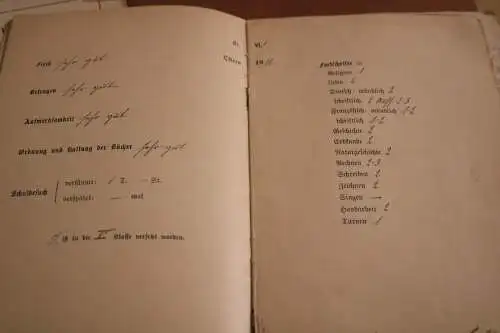 Fleiß sehr gut
Betragen sehr gut
Aufmerksamkeit sehr gut
Ordnung und Haltung der Bücher sehr gut
Schulbesuch
versäumt: 1 T. — St.
verspätet: — mal
ist in die Klasse versetzt worden.
Ostern 19
Fortschritte in
Religion 1
Lesen 2
Deutsch mündlich 2
schriftlich 2 Auff. 2-3
Französisch mündlich 1-2
schriftlich 1-2
Geschichte 2
Erdkunde 2
Naturgeschichte 2
Rechnen 2-3
Schreiben 2
Zeichnen 2
Singen —
Handarbeit 2
Turnen 1